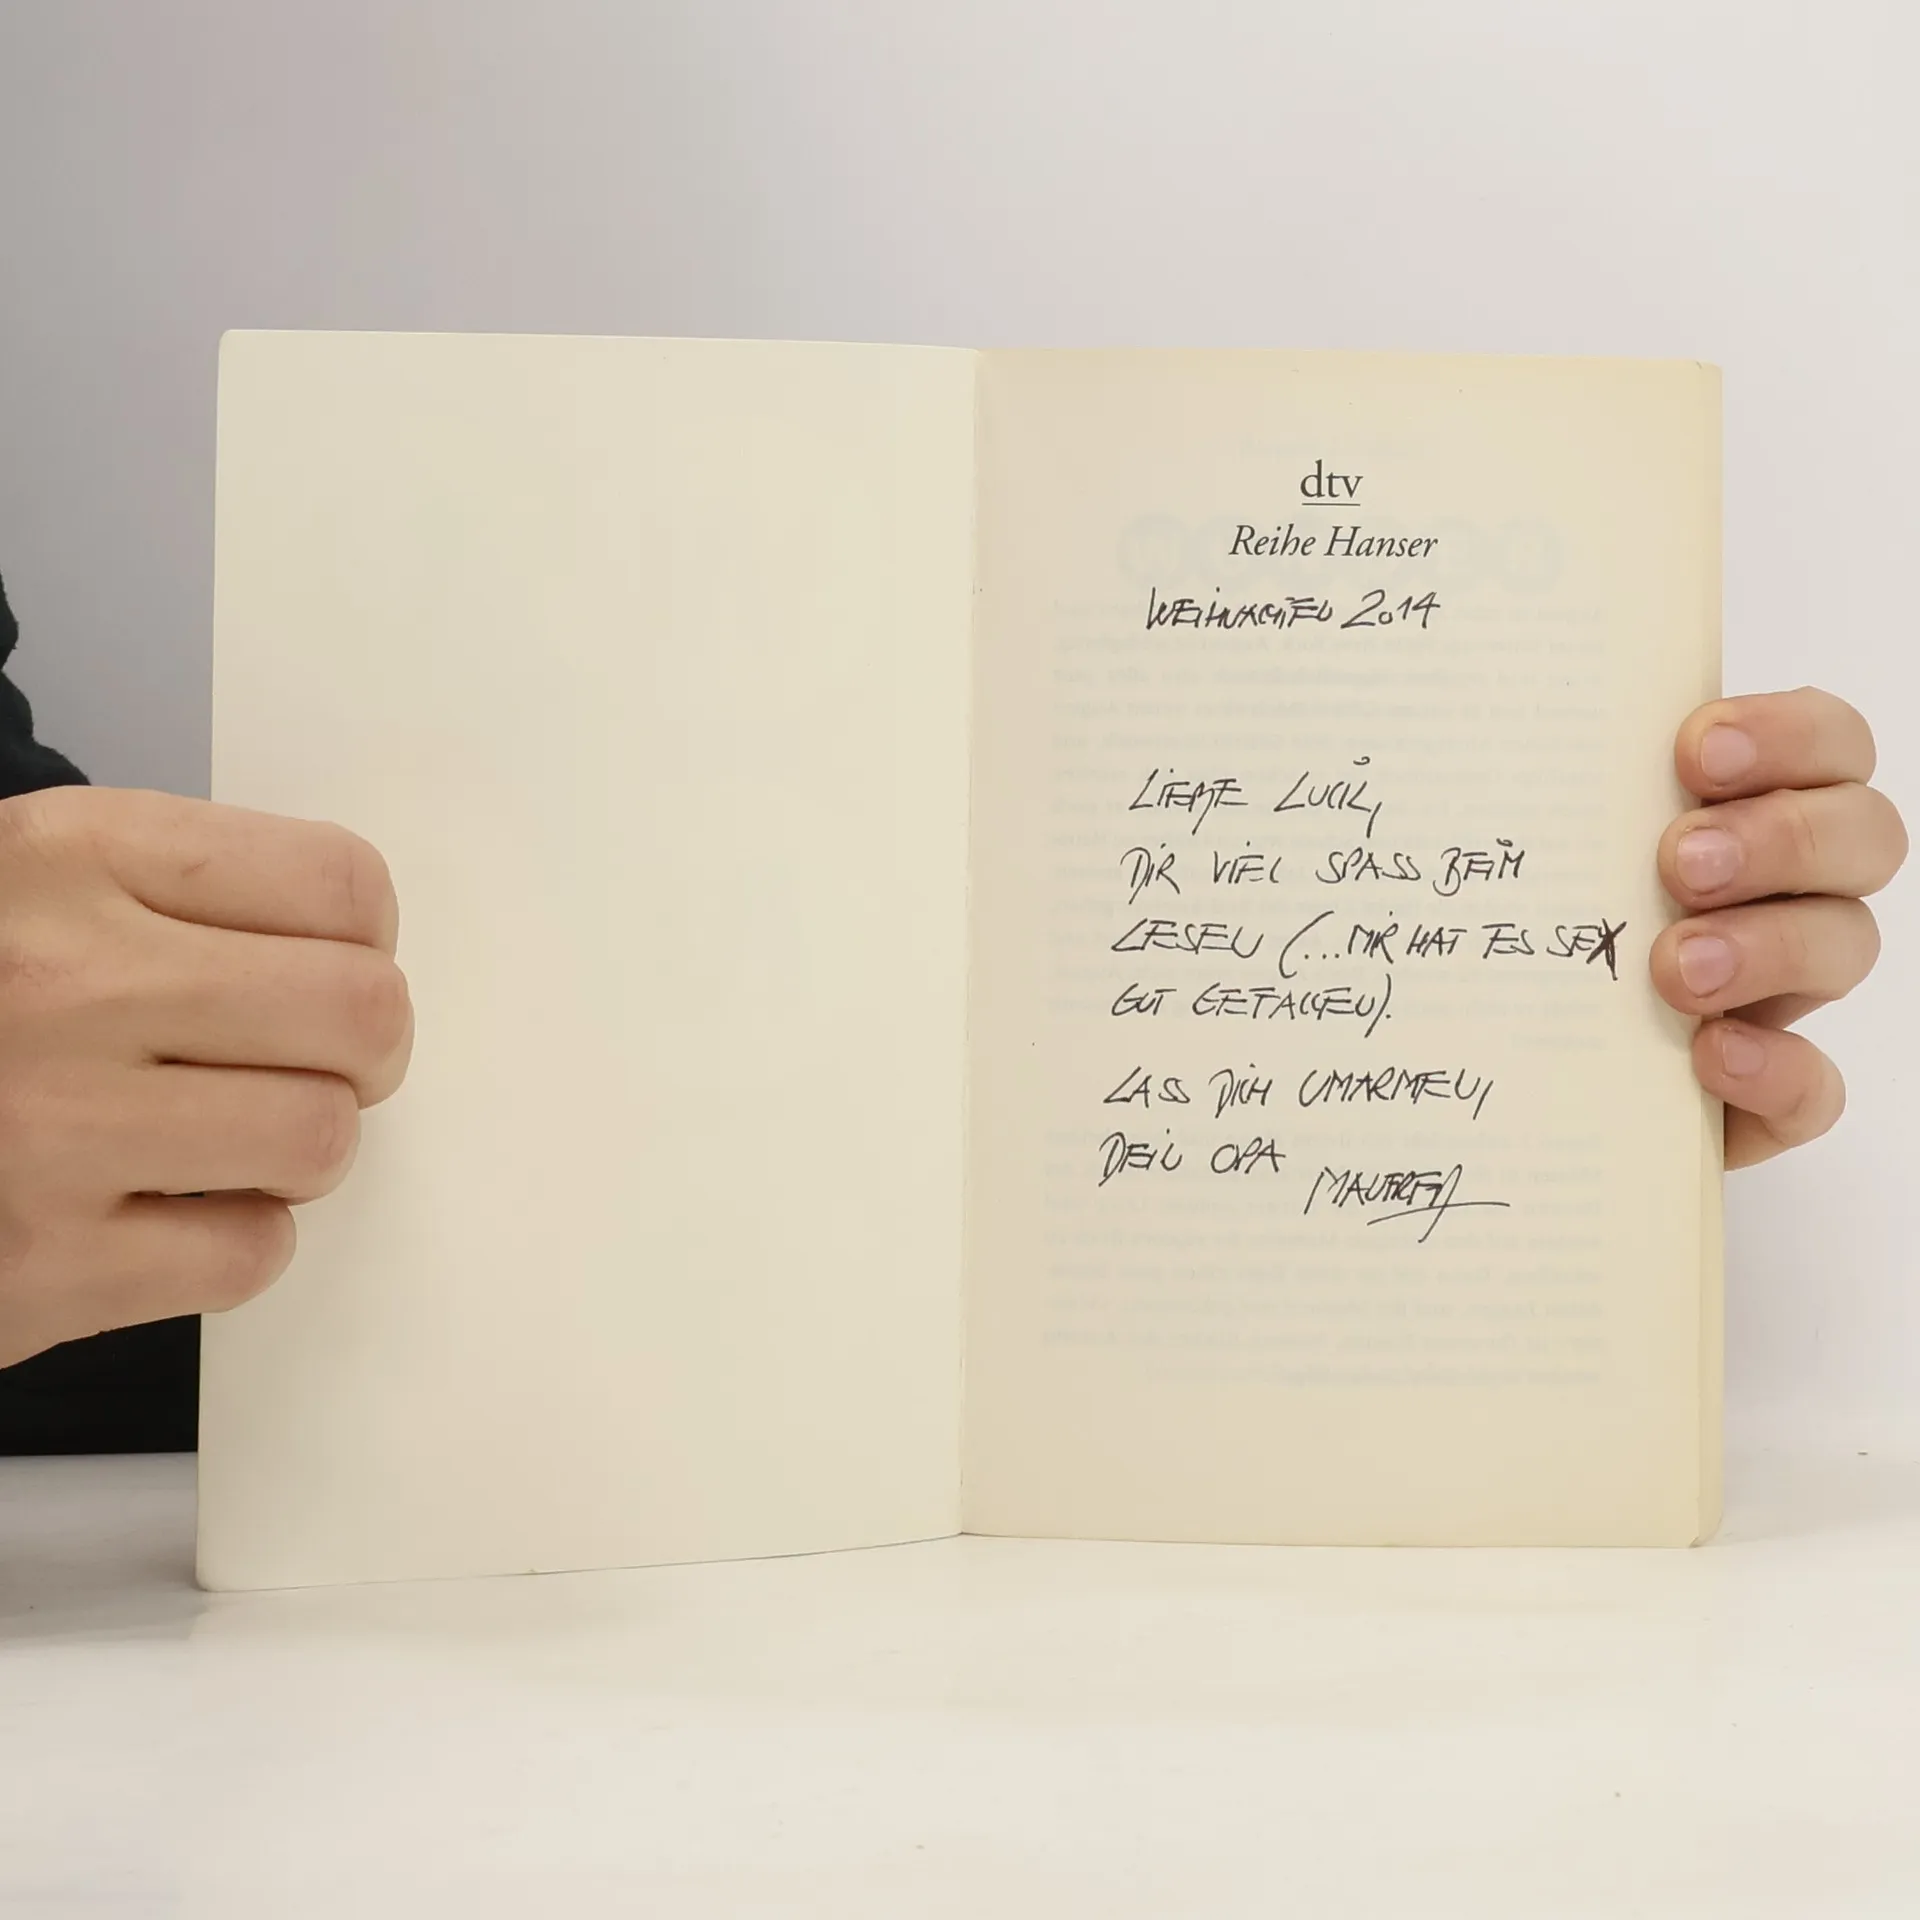 dtv
Reihe Hanser
WEIHNACHTEN 2014
LIEBE LUCIL,
DIR VIEL SPASS BEIM
LESEN (...MIR HAT ES SEHR
GUT GEFALLEN).
LASS DICH UMARMEN,
DEIN OPA
MANFRED